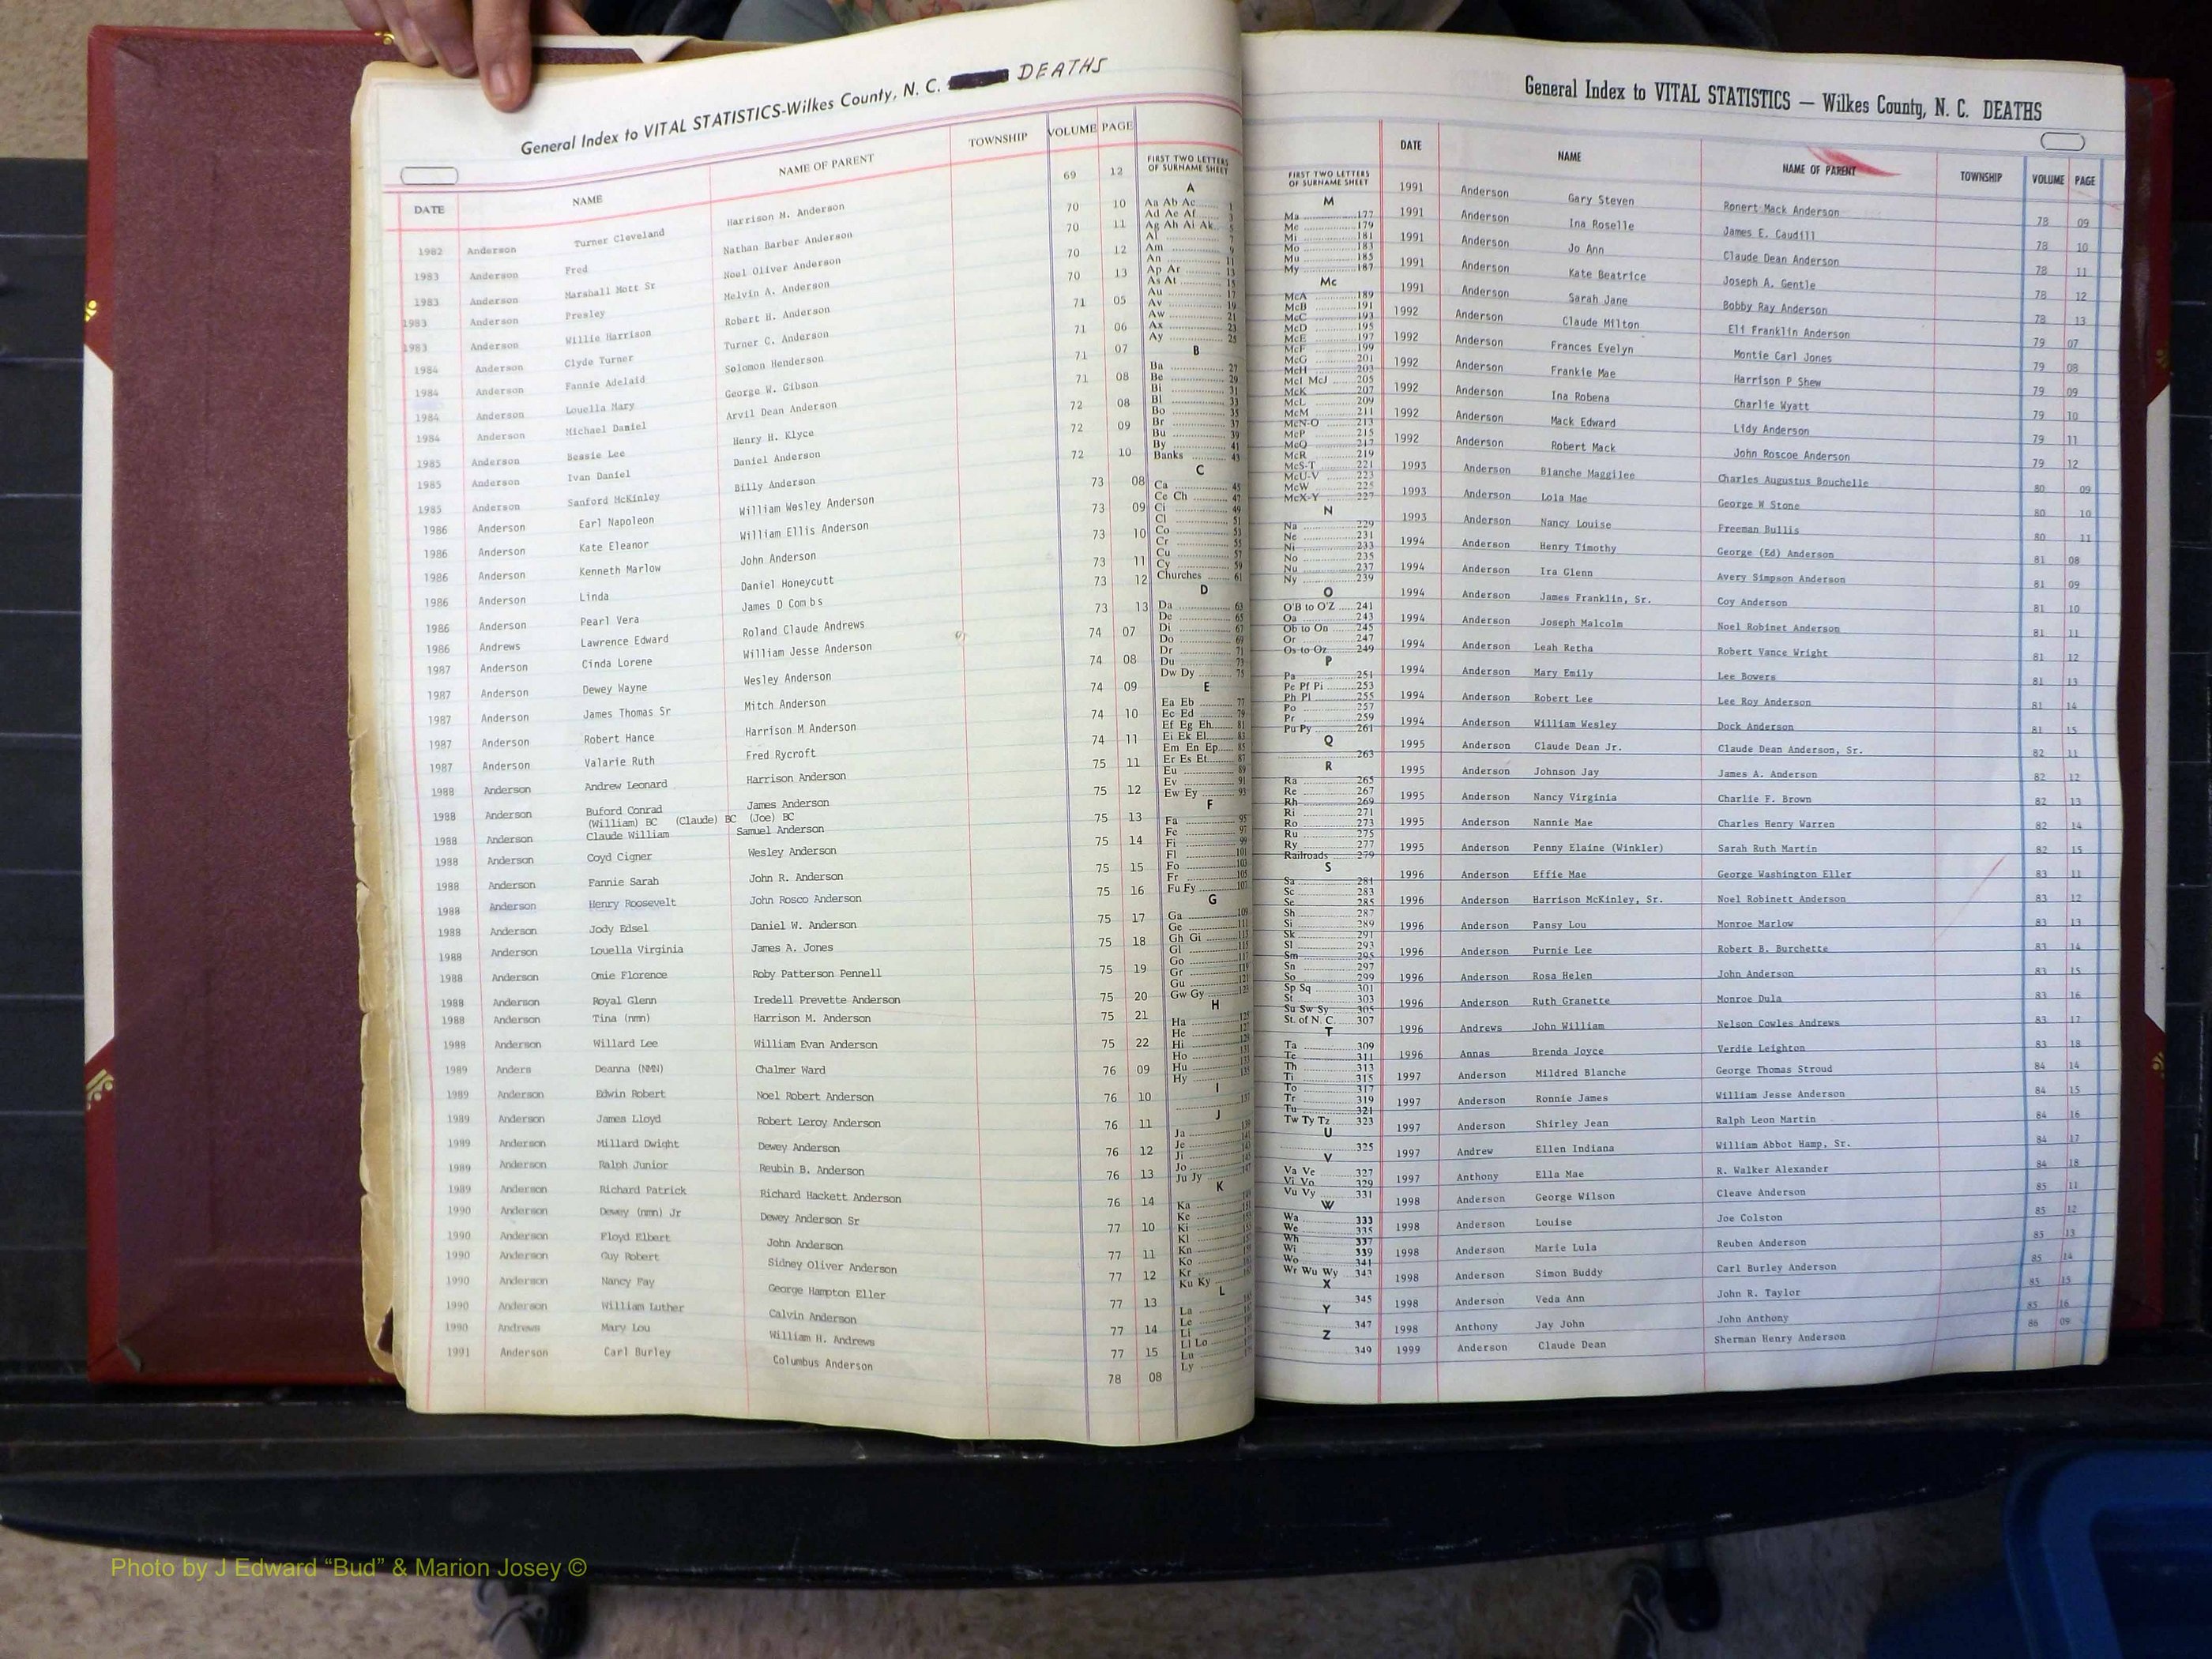 General Index to VITAL STATISTICS-Wilkes County, N. C. DEATHS
DATE NAME NAME OF PARENT TOWNSHIP VOLUME PAGE
1982 Anderson Turner Cleveland Harrison M. Anderson 69 12
1983 Anderson Fred Nathan Barber Anderson 70 10
1983 Anderson Marshall Mott Sr Noel Oliver Anderson 70 11
1983 Anderson Presley Melvin A. Anderson 70 12
1983 Anderson Willie Harrison Robert H. Anderson 70 13
1984 Anderson Clyde Turner Turner C. Anderson 71 05
1984 Anderson Fannie Adelaid Solomon Henderson 71 06
1984 Anderson Louella Mary George W. Gibson 71 07
1984 Anderson Michael Daniel Arvil Dean Anderson 71 08
1985 Anderson Bessie Lee Henry H. Klyce 72 08
1985 Anderson Ivan Daniel Daniel Anderson 72 09
1985 Anderson Sanford McKinley Billy Anderson 72 10
1986 Anderson Earl Napoleon William Wesley Anderson 73 08
1986 Anderson Kate Eleanor William Ellis Anderson 73 09
1986 Anderson Kenneth Marlow John Anderson 73 10
1986 Anderson Linda Daniel Honeycutt 73 11
1986 Anderson Pearl Vera James D Combs 73 12
1986 Andrews Lawrence Edward Roland Claude Andrews 73 13
1987 Anderson Cinda Lorene William Jesse Anderson 74 07
1987 Anderson Dewey Wayne Wesley Anderson 74 08
1987 Anderson James Thomas Sr Mitch Anderson 74 09
1987 Anderson Robert Hance Harrison M Anderson 74 10
1987 Anderson Valarie Ruth Fred Rycroft 74 11
1988 Anderson Andrew Leonard Harrison Anderson 75 11
1988 Anderson Buford Conrad James Anderson 75 12
(William) BC (Claude) BC (Joe) BC
1988 Anderson Claude William Samuel Anderson 75 13
1988 Anderson Coyd Cigner Wesley Anderson 75 14
1988 Anderson Fannie Sarah John R. Anderson 75 15
1988 Anderson Henry Roosevelt John Rosco Anderson 75 16
1988 Anderson Jody Edsel Daniel W. Anderson 75 17
1988 Anderson Louella Virginia James A. Jones 75 18
1988 Anderson Omie Florence Roby Patterson Pennell 75 19
1988 Anderson Royal Glenn Iredell Prevette Anderson 75 20
1988 Anderson Tina (nmn) Harrison M. Anderson 75 21
1988 Anderson Willard Lee William Evan Anderson 75 22
1989 Anders Deanna (NMN) Chalmer Ward 76 09
1989 Anderson Edwin Robert Noel Robert Anderson 76 10
1989 Anderson James Lloyd Robert Leroy Anderson 76 11
1989 Anderson Millard Dwight Dewey Anderson 76 12
1989 Anderson Ralph Junior Reubin B. Anderson 76 13
1989 Anderson Richard Patrick Richard Hackett Anderson 76 14
1990 Anderson Dewey (nmn) Jr Dewey Anderson Sr 77 10
1990 Anderson Floyd Elbert John Anderson 77 11
1990 Anderson Guy Robert Sidney Oliver Anderson 77 12
1990 Anderson Nancy Fay George Hampton Eller 77 13
1990 Anderson William Luther Calvin Anderson 77 14
1990 Andrews Mary Lou William H. Andrews 77 15
1991 Anderson Carl Burley Columbus Anderson 78 08
FIRST TWO LETTERS
OF SURNAME SHEET
A
Aa Ab Ac 1
Ad Ae Af 3
Ag Ah Ai Ak 5
Al 7
Am 9
An 11
Ap Ar 13
As At 15
Au 17
Av 19
Aw 21
Ax 23
Ay 25
B
Ba 27
Be 29
Bi 31
Bl 33
Bo 35
Br 37
Bu 39
By 41
Banks 43
C
Ca 45
Ce Ch 47
Ci 49
Cl 51
Co 53
Cr 55
Cu 57
Cy 59
Churches 61
D
Da 63
De 65
Di 67
Do 69
Dr 71
Du 73
Dw Dy 75
E
Ea Eb 77
Ec Ed 79
Ef Eg Eh 81
Ei Ek El 83
Em En Ep 85
Er Es Et 87
Eu 89
Ev 91
Ew Ey 93
F
Fa 95
Fe 97
Fi 99
Fl 101
Fo 103
Fr 105
Fu Fy 107
G
Ga 109
Ge 111
Gh Gi 113
Gl 115
Go
Gr
Gu 121
Gw Gy 123
H
Ha 125
He 127
Hi 129
Ho 131
Hu 133
Hy 135
I
137
J
Ja
Je
Ji
Jo
Ju Jy
K
Ka
Ke
Ki
Kl
Kn
Ko
Kr
Ku Ky
L
La
Le
Li
Ll Lo
Lu
Ly
General Index to VITAL STATISTICS — Wilkes County, N. C. DEATHS
FIRST TWO LETTERS
OF SURNAME SHEET
M
Ma 177
Me 179
Mi 181
Mo 183
Mu 185
My 187
Mc
McA 189
McB 191
McC 193
McD 195
McE 197
McF 199
McG 201
McH 203
McI McJ 205
McK 207
McL 209
McM 211
McN-O 213
McP 215
McQ 217
McR 219
McS-T 221
McU-V 223
McW 225
McX-Y 227
N
Na 229
Ne 231
Ni 233
No 235
Nu 237
Ny 239
O
O'B to O'Z 241
Oa 243
Ob to On 245
Or 247
Os to Oz 249
P
Pa 251
Pe Pf Pi 253
Ph Pl 255
Po 257
Pr 259
Pu Py 261
Q
263
R
Ra 265
Re 267
Rh 269
Ri 271
Ro 273
Ru 275
Ry 277
Railroads 279
S
Sa 281
Sc 283
Se 285
Sh 287
Si 289
Sk 291
Sl 293
Sm 295
Sn 297
So 299
Sp Sq 301
St 303
Su Sw Sy 305
St. of N. C. 307
T
Ta 309
Te 311
Th 313
Ti 315
To 317
Tr 319
Tu 321
Tw Ty Tz 323
U
325
V
Va Ve 327
Vi Vo 329
Vu Vy 331
W
Wa 333
We 335
Wh 337
Wi 339
Wo 341
Wr Wu Wy 343
X
345
Y
347
Z
349
DATE NAME NAME OF PARENT TOWNSHIP VOLUME PAGE
1991 Anderson Gary Steven Ronert Mack Anderson 78 09
1991 Anderson Ina Roselle James E. Caudill 78 10
1991 Anderson Jo Ann Claude Dean Anderson 78 11
1991 Anderson Kate Beatrice Joseph A. Gentle 78 12
1991 Anderson Sarah Jane Bobby Ray Anderson 78 13
1992 Anderson Claude Milton Eli Franklin Anderson 79 07
1992 Anderson Frances Evelyn Montie Carl Jones 79 08
1992 Anderson Frankie Mae Harrison P Shew 79 09
1992 Anderson Ina Robena Charlie Wyatt 79 10
1992 Anderson Mack Edward Lidy Anderson 79 11
1992 Anderson Robert Mack John Roscoe Anderson 79 12
1993 Anderson Blanche Maggilee Charles Augustus Bouchelle 80 09
1993 Anderson Lola Mae George W Stone 80 10
1993 Anderson Nancy Louise Freeman Bullis 80 11
1994 Anderson Henry Timothy George (Ed) Anderson 81 08
1994 Anderson Ira Glenn Avery Simpson Anderson 81 09
1994 Anderson James Franklin, Sr. Coy Anderson 81 10
1994 Anderson Joseph Malcolm Noel Robinet Anderson 81 11
1994 Anderson Leah Retha Robert Vance Wright 81 12
1994 Anderson Mary Emily Lee Bowers 81 13
1994 Anderson Robert Lee Lee Roy Anderson 81 14
1994 Anderson William Wesley Dock Anderson 81 15
1995 Anderson Claude Dean Jr. Claude Dean Anderson, Sr. 82 11
1995 Anderson Johnson Jay James A. Anderson 82 12
1995 Anderson Nancy Virginia Charlie F. Brown 82 13
1995 Anderson Nannie Mae Charles Henry Warren 82 14
1995 Anderson Penny Elaine (Winkler) Sarah Ruth Martin 82 15
1996 Anderson Effie Mae George Washington Eller 83 11
1996 Anderson Harrison McKinley, Sr. Noel Robinett Anderson 83 12
1996 Anderson Pansy Lou Monroe Marlow 83 13
1996 Anderson Purnie Lee Robert B. Burchette 83 14
1996 Anderson Rosa Helen John Anderson 83 15
1996 Anderson Ruth Granette Monroe Dula 83 16
1996 Andrews John William Nelson Cowles Andrews 83 17
1996 Annas Brenda Joyce Verdie Leighton 83 18
1997 Anderson Mildred Blanche George Thomas Stroud 84 14
1997 Anderson Ronnie James William Jesse Anderson 84 15
1997 Anderson Shirley Jean Ralph Leon Martin 84 16
1997 Andrew Ellen Indiana William Abbot Hamp, Sr. 84 17
1997 Anthony Ella Mae R. Walker Alexander 84 18
1998 Anderson George Wilson Cleave Anderson 85 11
1998 Anderson Louise Joe Colston 85 12
1998 Anderson Marie Lula Reuben Anderson 85 13
1998 Anderson Simon Buddy Carl Burley Anderson 85 14
1998 Anderson Veda Ann John R. Taylor 85 15
1998 Anthony Jay John John Anthony 85 16
1999 Anderson Claude Dean Sherman Henry Anderson 86 09
Photo by J Edward “Bud” & Marion Josey ©